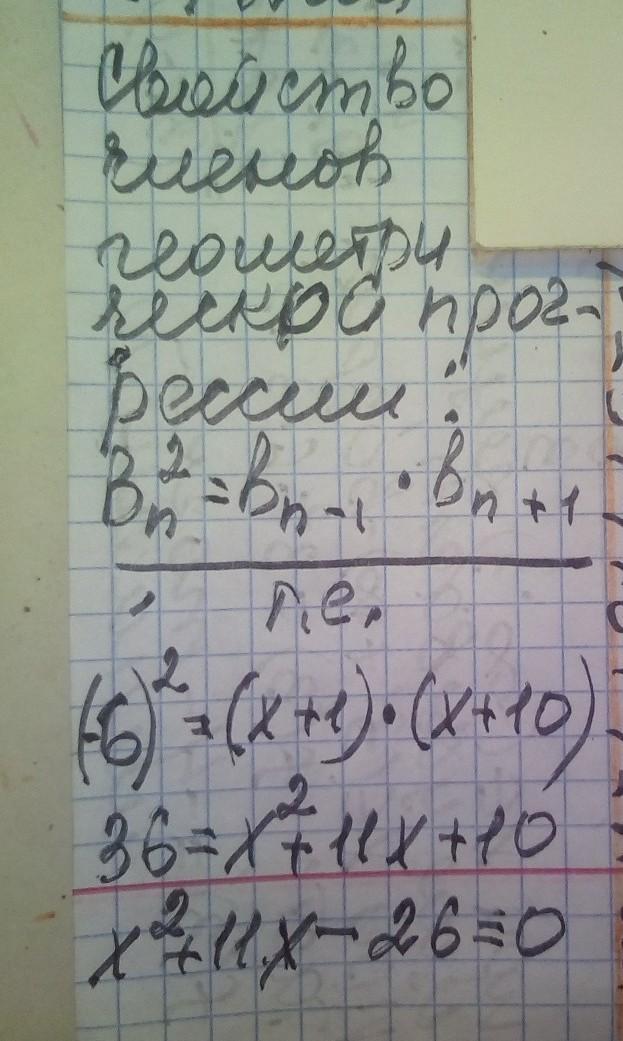 Свойство
членов
геометри
ческой прог-
рессии:
Bn² = bn-1 · bn+1
т.е.
(-6)² = (x+1)·(x+10)
36 = x² + 11x + 10
x² + 11x - 26 = 0